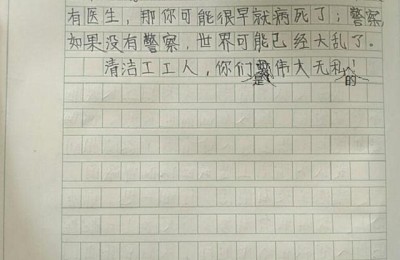 有医生，那你可能很早就病死了；警察
如果没有警察，世界可能已经大乱了。
清洁工工人，你们是伟大无私的！